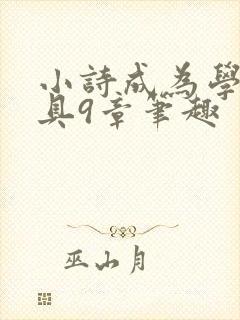 小詩成為學
具9章筆趣
巫山月